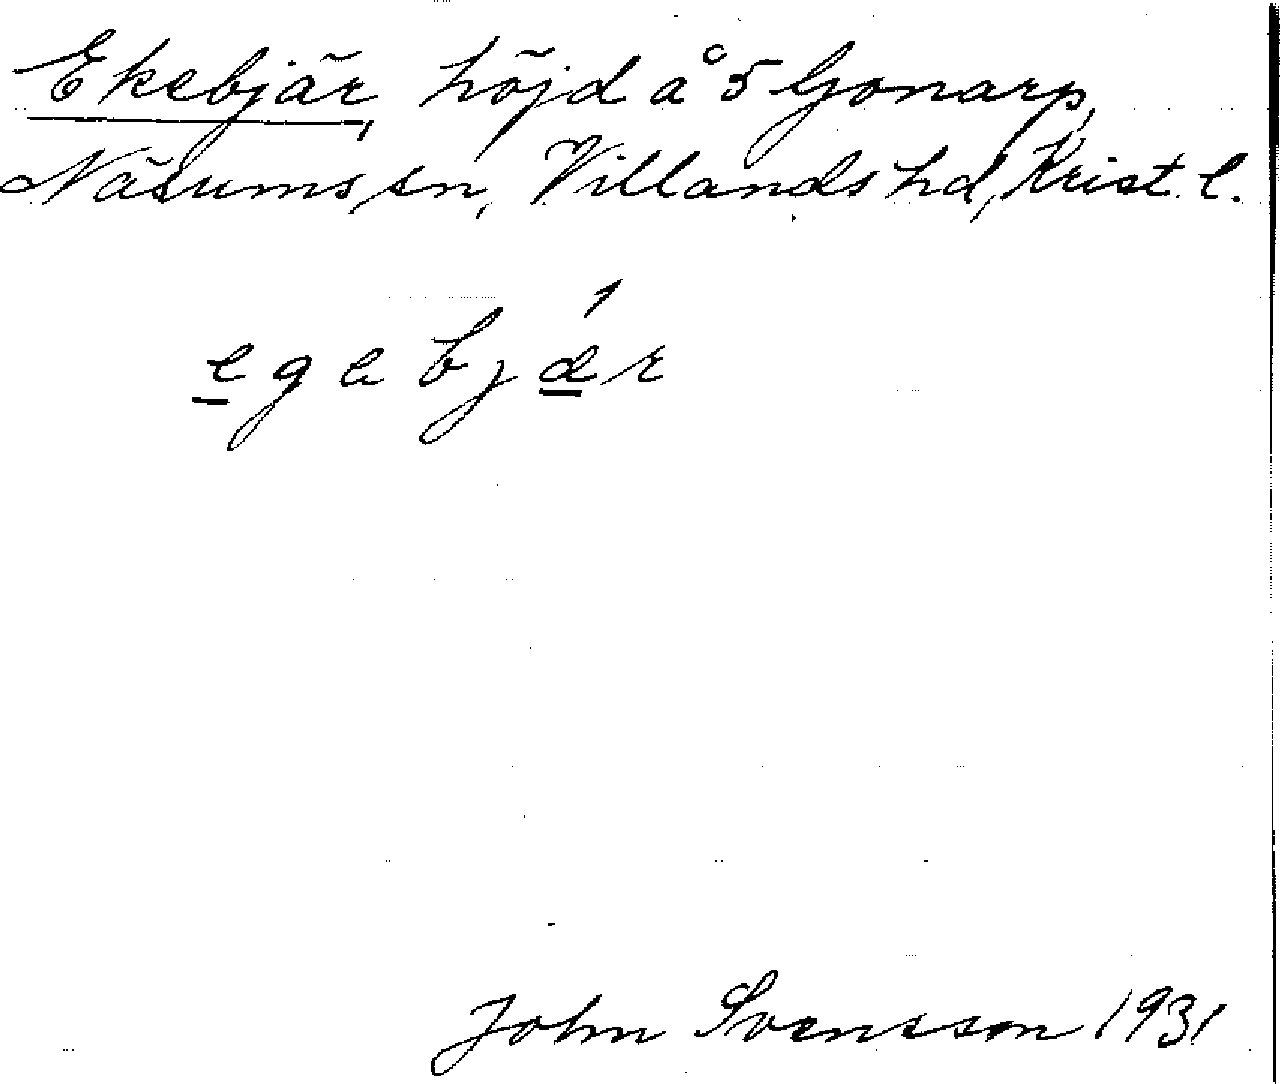 Ekebjär, höjd å 5 Gonarp,
Näsums sn, Villands hd, Krist. l.
egebjár
John Svensson 1931